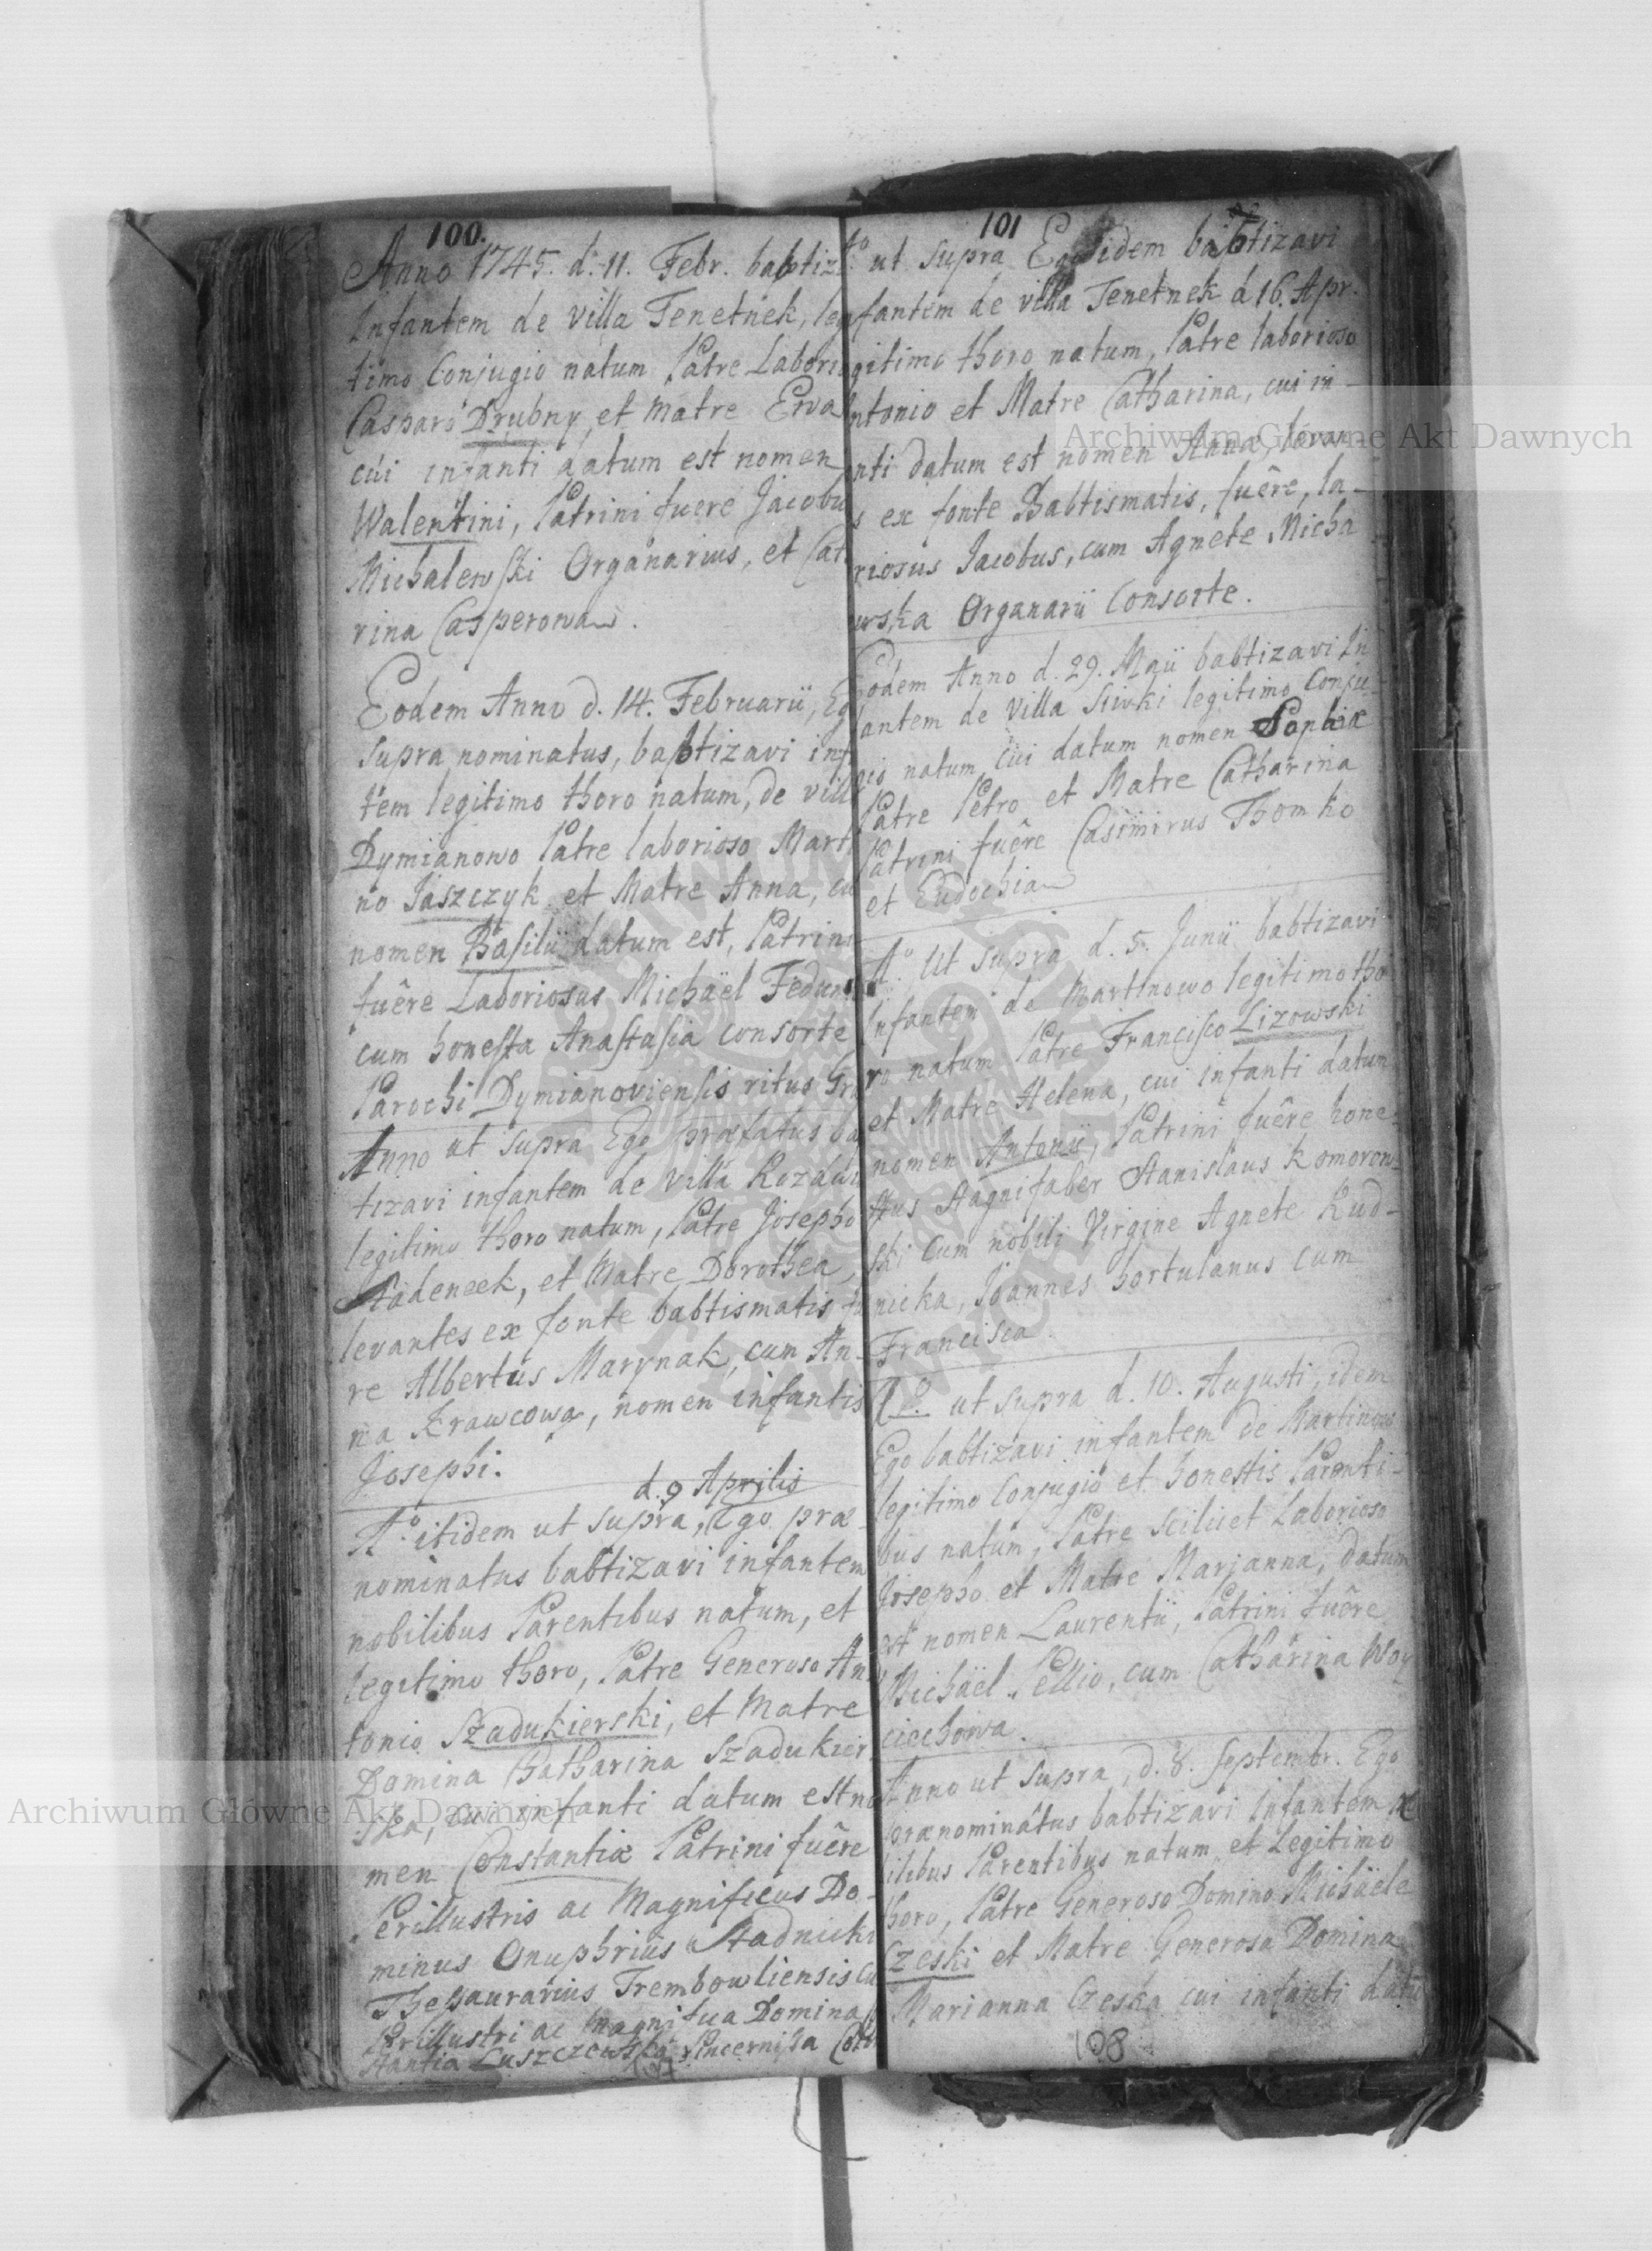 100.
Anno 1745. d. 11. Febr. babtiz
Infantem de villa Tenetnek, leg
timo Conjugio natum Patre Labori
Casparo Drubny, et Matre Ewa
cui infanti datum est nomen
Walentini, Patrini fuere Jacobu
Michalewski Organarius, et Cat
rina Casperowa.
Eodem Anno d. 14. Februarii, Eg
supra nominatus, babtizavi inf
tem legitimo thoro natum, de vill
Dymianowo Patre laborioso Mart
no Jaszczyk et Matre Anna, cu
nomen Basilii datum est, Patrini
fuêre Laboriosus Michaël Fedun
cum honesta Anastasia consorte
Parochi Dymianoviensis ritus Gr
Anno ut supra Ego præfatus ba
tizavi infantem de Villa
legitimo thoro natum, Patre Josepho
et Matre Dorothea,
levantes ex fonte babtismatis fu
re Albertus Marynak, cum An-
na Krawcowa, nomen infantis
Josephi.
d. 9 Aprilis
Aº itidem ut supra, Ego præ-
nominatus babtizavi infantem
nobilibus Parentibus natum, et
legitimo thoro, Patre Generoso An-
tonio Szadukierski, et Matre
Domina Chatharina Szadukier
ska, cui infanti datum est no
men Constantiæ Patrini fuêre
Perillustris ac Magnificus Do-
minus Onuphrius Stadnicki
Thesaurarius Trembowliensis cu
Perillustri ac Magnifica Domina
stantia Luszczewska Pincernissa
101
Aº ut supra Ego idem babtizavi
fantem de villa Tenetnek d 16. Apr.
gitimo thoro natum, Patre laborioso
ntonio et Matre Catharina, cui in-
nti datum est nomen Annæ, levan-
s ex fonte Babtismatis, fuêre, la-
riosus Jacobus, cum Agnete Micha
wska Organarii Consorte.
Eodem Anno d. 29. Maii babtizavi In
fantem de Villa Siwki legitimo Conju-
gio natum, cui datum nomen Sophiæ
Patre Petro et Matre Catharina
Patrini fuêre Casimirus Thomko
et Eudochia
Aº Ut supra d. 5. Junii babtizavi
Infantem de Martinowo legitimo tho
ro natum Patre Francisco Lizowski
et Matre Helena, cui infanti datum
nomen Antonii, Patrini fuêre hone-
stus Stagnifaber Stanislaus Komorow-
ski cum nobili Virgine Agnete Rud-
nicka, Joannes hortulanus cum
Francisca.
Aº ut supra d. 10. Augusti, idem
Ego babtizavi infantem de Martinowo
legitimo Conjugio et honestis Parenti-
bus natum, Patre scilicet Laborioso
Josepho et Matre Marianna, datum
est nomen Laurentii, Patrini fuêre
Michaël Pellio, cum Catharina Woy
ciechowa.
Anno ut supra, d. 8. Septembr. Ego
prænominatus babtizavi Infantem
ilibus Parentibus natum, et Legitimo
thoro, Patre Generoso Domino Michaële
Czeski et Matre Generosa Domina
Marianna Czeska cui infanti datu
108
Archiwum Główne Akt Dawnych
Archiwum Główne Akt Dawnych
ARCHIWUM GŁÓWNE
AKT DAWNYCH